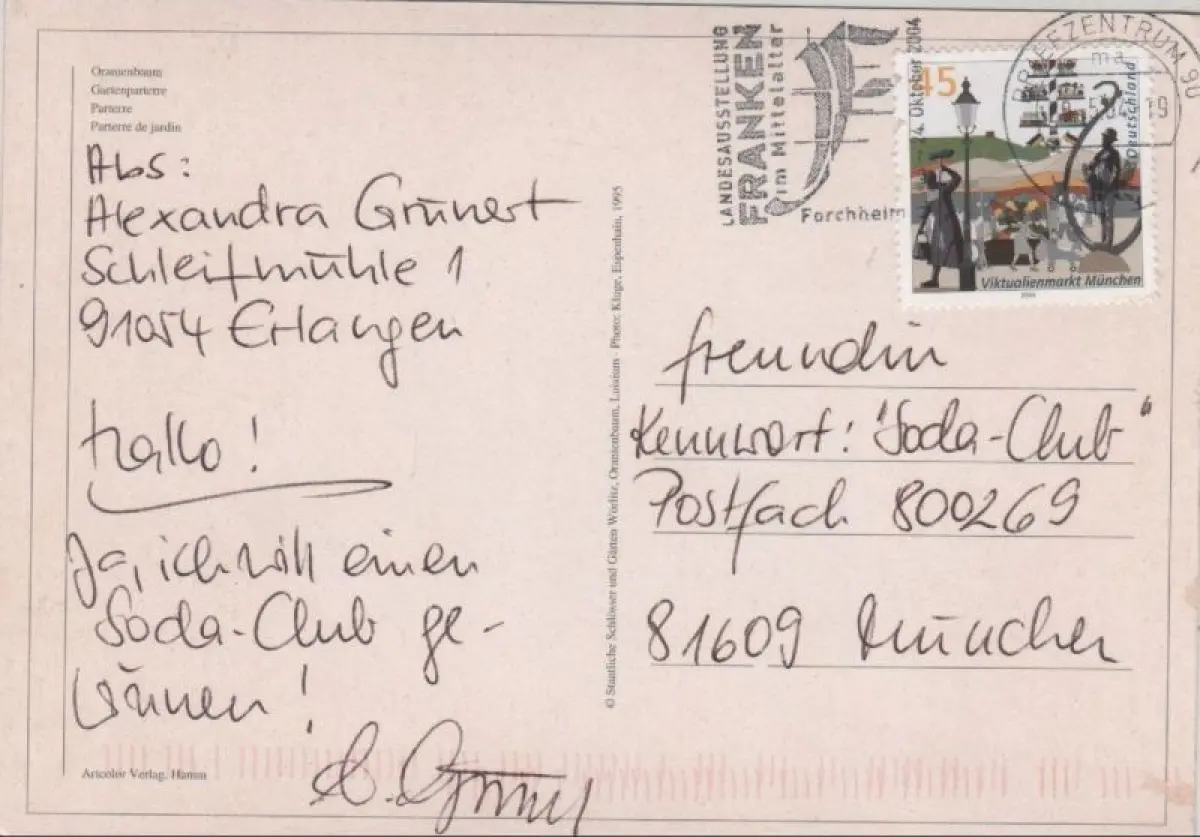 Oranienbaum
Gartenparterre
Parterre
Parterre de jardin
Abs:
Alexandra Grünert
Schleifmühle 1
91054 Erlangen
Hallo!
Ja, ich will einen
Soda-Club ge-
winnen!
Artcolor Verlag, Hamm
© Staatliche Schlösser und Gärten Wörlitz, Oranienbaum, Luisium - Photo: Kluge, Espenhain, 1995
LANDESAUSSTELLUNG
FRANKEN
im Mittelalter
Forchheim
24. Oktober 2004
BRIEFZENTRUM 90
45
Deutschland
Viktualienmarkt München
freundin
Kennwort: "Soda-Club"
Postfach 800269
81609 München